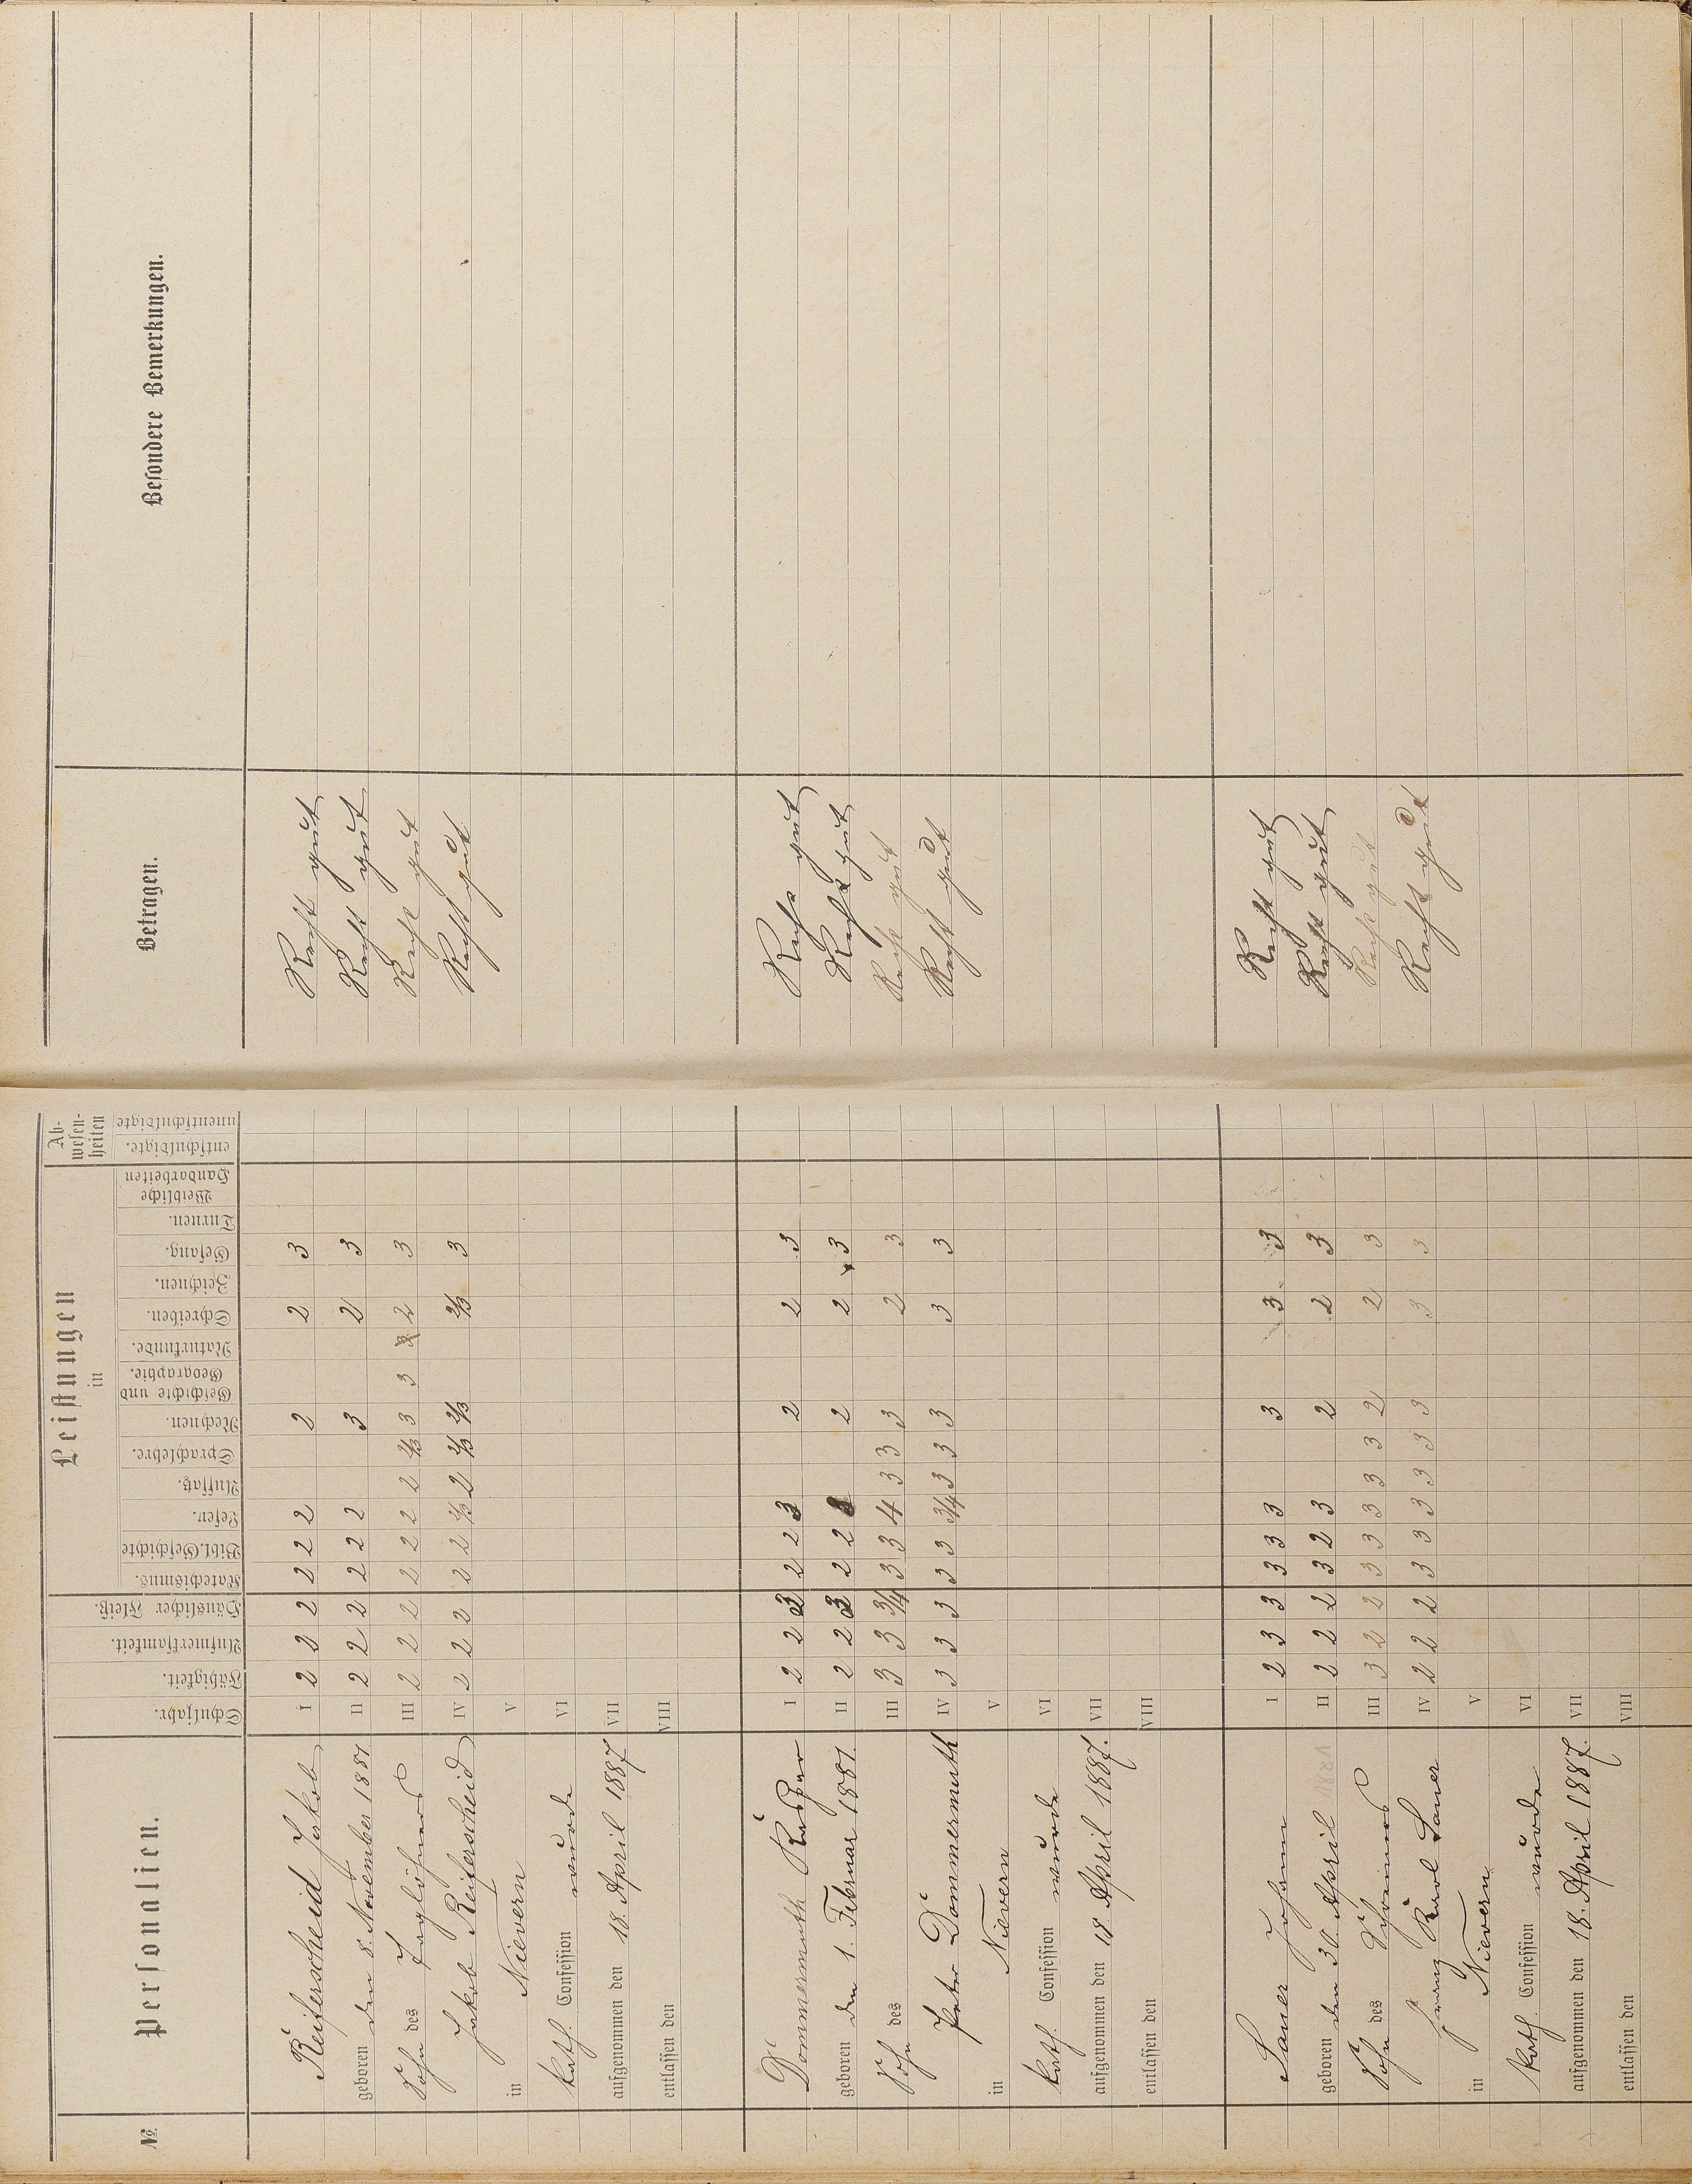 №.
Personalien.
Schuljahr.
Fähigkeit.
Aufmerksamkeit.
Häuslicher Fleiß.
Leistungen
in
Katechismus.
Bibl. Geschichte
Lesen.
Aufsatz.
Sprachlehre.
Rechnen.
Geschichte und
Geographie.
Naturkunde.
Schreiben.
Zeichnen.
Gesang.
Turnen.
Weibliche
Handarbeiten
Ab-
wesen-
heiten
entschuldigte.
unentschuldigte
Betragen.
Besondere Bemerkungen.
Reiferscheid Jakob I 2 2 2 2 2 2 2 2 3 Recht gut
geboren den 8. November 1881 II 2 2 2 2 2 2 3 2 3 Recht gut
Sohn des Taglöhners III 2 2 2 2 2 2 2 2/3 3 3 2 3 Recht gut
Jakob Reiferscheid IV 2 2 2 2 2 2/3 2 2/3 2/3 2/3 3 Recht gut
in Nievern V
kath. Confession wurde VI
aufgenommen den 18. April 1887 VII
entlassen den VIII
Dommermuth I 2 2 2 2 2 3 2 2 3 Recht gut
geboren den 1. Februar 1881. II 2 2 2 2 2 2 3 Recht gut
Sohn des III 3 3 3/4 3 3 4 3 3 3 2 3 Recht gut
Peter Dommermuth IV 3 3 3 3 3 3/4 3 3 3 3 3 Recht gut
in Nievern V
kath. Confession wurde VI
aufgenommen den 18. April 1887. VII
entlassen den VIII
Sauer Johann I 2 3 3 3 3 3 3 3 3 Recht gut
geboren den 30. April II 2 2 2 3 2 3 2 2 3 Recht gut
Sohn des III 3 2 2 3 3 3 3 3 2 2 3 Recht gut
Franz Karl Sauer IV 2 2 2 3 3 3 3 3 3 3 3 Recht gut
in Nievern V
kath. Confession wurde VI
aufgenommen den 18. April 1887. VII
entlassen den VIII